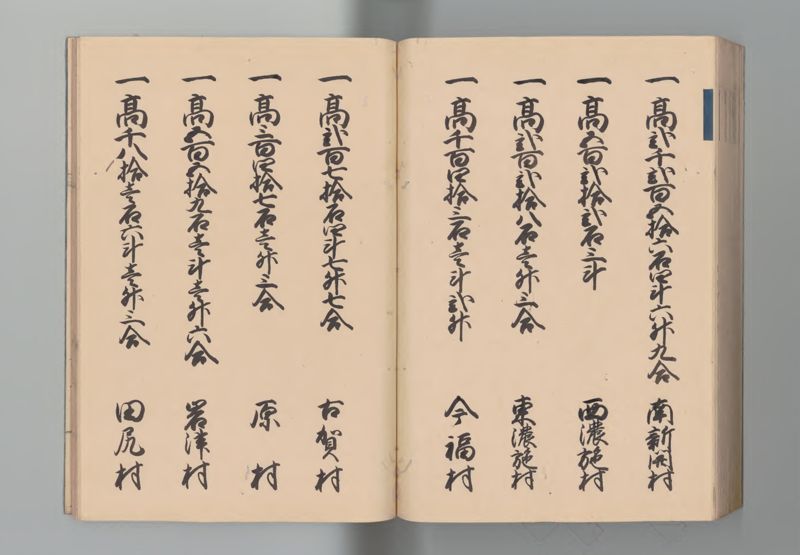 一高弐千弐百五拾六石四斗六升九合 南新開村
一高五百弐拾弐石三斗 西濃施村
一高弐百弐拾八石壱升三合 東濃施村
一高千百四拾三石壱斗弐升 今福村
一高弐百七拾石四斗七升七合 古賀村
一高三百四拾七石壱升三合 原村
一高五百五拾九石壱斗壱升六合 岩津村
一高千八拾壱石六斗壱升三合 田尻村